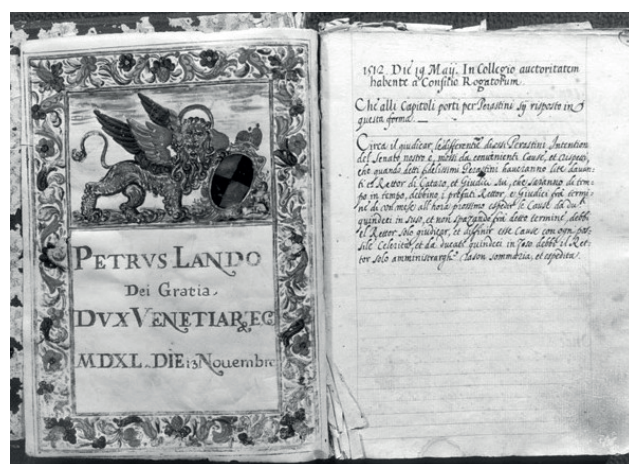 PETRVS LANDO
Dei Gratia.
DVX VENETIAR, EC
MDXL. DIE 13 Nouembr
1512. Die 19 Maij. In Collegio auctoritatem
habente a Consilio Rogatorum.
Che alli Capitoli porti per Perastini sij risposto in
questa forma.
Circa il giudicar le differentie di essi Perastini Intention
del Senato nostro è, mossi da conuenienti Cause, et Rispetti,
che quando detti fidelissimi Perastini haueranno lite dauan=
ti el Rettor di Cataro, et Giudici sui, che saranno di tem=
po in tempo, debbino i prefati Rettor, e Giudici fra termi=
ne di un mese all'hora prossimo espedir le Cause da du
quindeci in suso, et non spazando fra detto termine, debbi
el Rettor solo giudicar, et diffinir esse Cause con ogni pos=
sibile Celerità, et da ducati quindeci in zoso debbi il Ret=
tor solo amministrargli rason sommaria, et espedita.